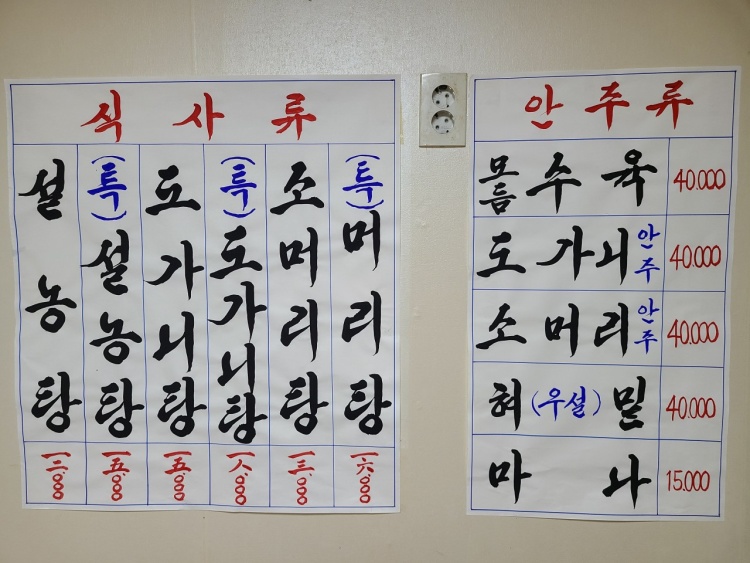 식사류
설농탕 一二.000
(특)설농탕 一五.000
도가니탕 一五.000
(특)도가니탕 一八.000
소머리탕 一三.000
(특)머리탕 一六.000
안주류
모듬수육 40.000
도가니안주 40.000
소머리안주 40.000
혀(우설)밑 40.000
마나 15.000